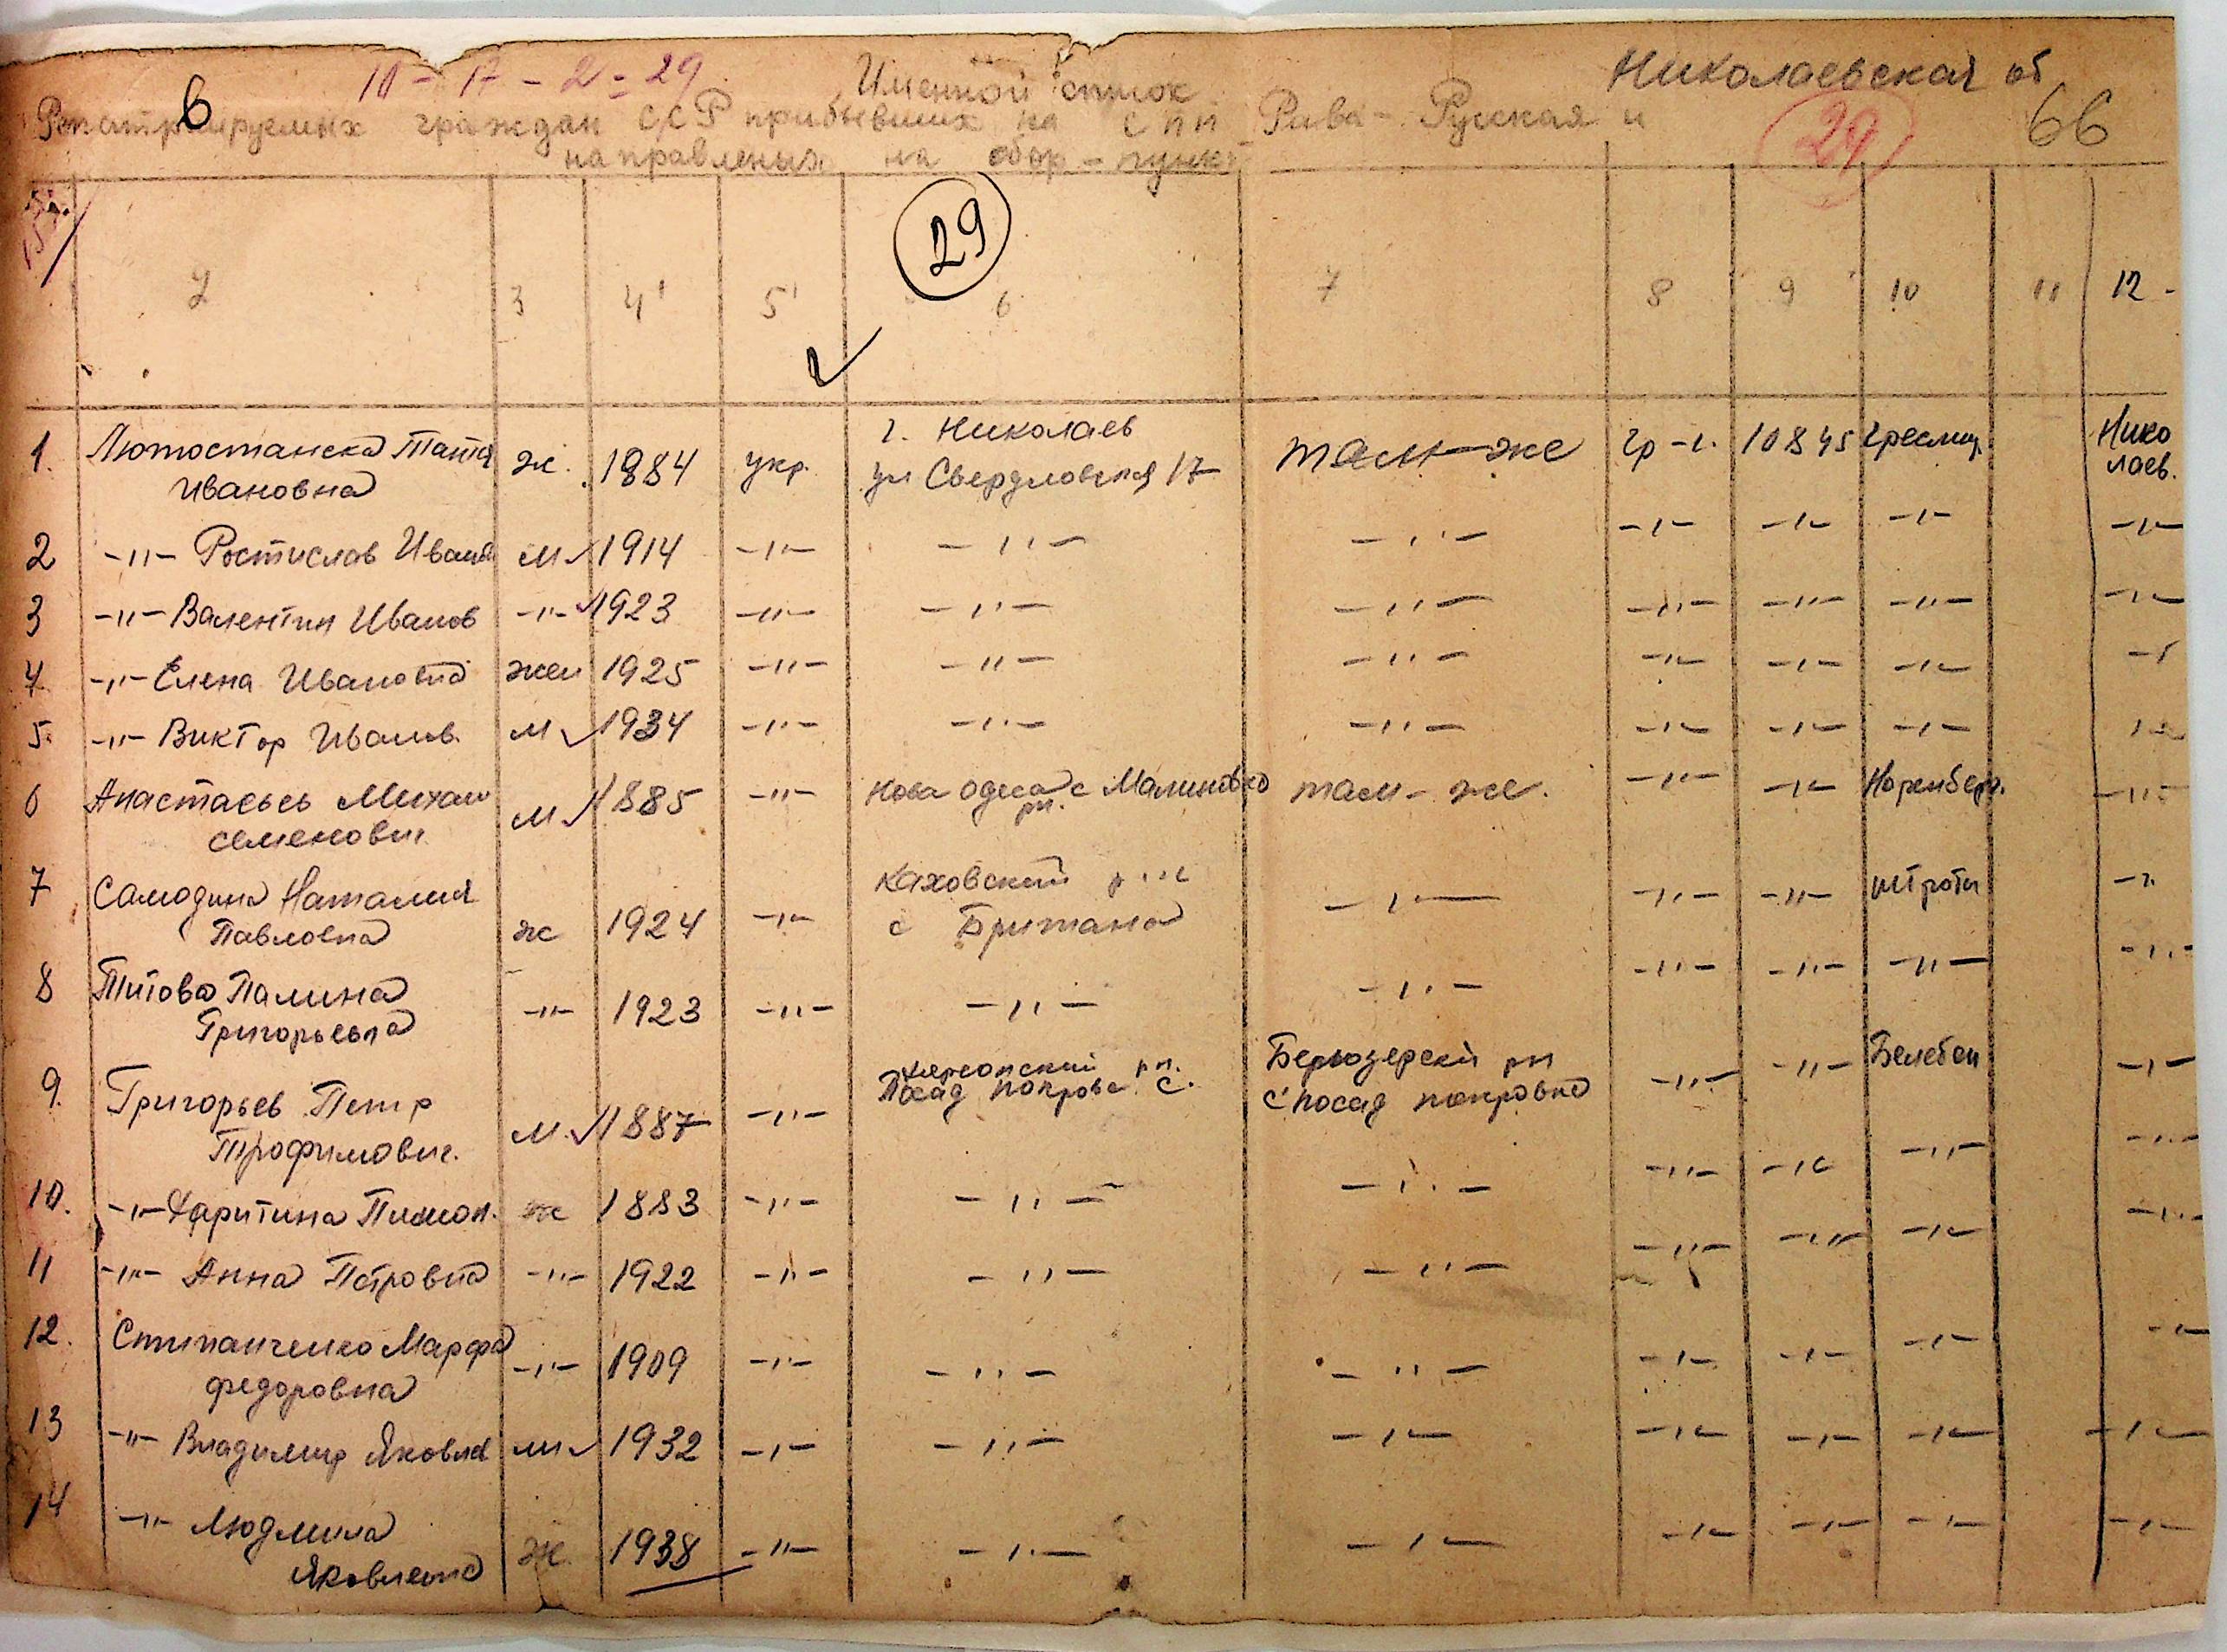 Николаевская об
10-17-2=29
Именной список
6
29
66
Репатриируемых граждан ССР прибывших на СПП Рава-Русская и
направленых на сбор-пункт
29
2 3 4 5 6 7 8 9 10 11 12-
г. Николаев
1. Лютостанска Татья ж. 1884 укр. ул Свердловская 17 там-же гр-г. 10845 Нико
Ивановна лаев.
2 -"- Ростислав Иванов м 1914 -"- -"- -"- -"- -"- -"- -"-
3 -"- Валентин Иванов -"- 1923 -"- -"- -"- -"- -"- -"- -"-
4. -"- Елена Ивановна жен 1925 -"- -"- -"- -"- -"- -"-
5. -"- Виктор Иванов. м 1934 -"- -"- -"- -"- -"- -"-
6 Анастасьев Михаил м 1885 -"- Нова Одеса с Малиновко там-же. -"- -"- Норенберг. -"-
рн.
семенович
7 Самодина Наталия Каховский
Павловна ж 1924 -"- с Британа -"- -"- -"- -"-
8 Титова Палина -"- 1923 -"- -"- -"- -"- -"- -"- -"-
Григорьевна
херсонский рн. Берюзерски рн
9. Григорьев Петр м. 1887 -"- Посад покрова с. с посад покровка -"- -"- Белебен -"-
Трофимович.
10. -"- Харитина Пимон. ж 1883 -"- -"- -"- -"- -"- -"- -"-
11 -"- Анна Петровна -"- 1922 -"- -"- -"- -"- -"- -"- -"-
12. Стипанченко Марфа -"- 1909 -"- -"- -"- -"- -"- -"- -"-
федоровна
13 -"- Владимир Яковлев м 1932 -"- -"- -"- -"- -"- -"- -"-
14 -"- Людмила ж. 1938 -"- -"- -"- -"- -"- -"- -"-
Яковлевна